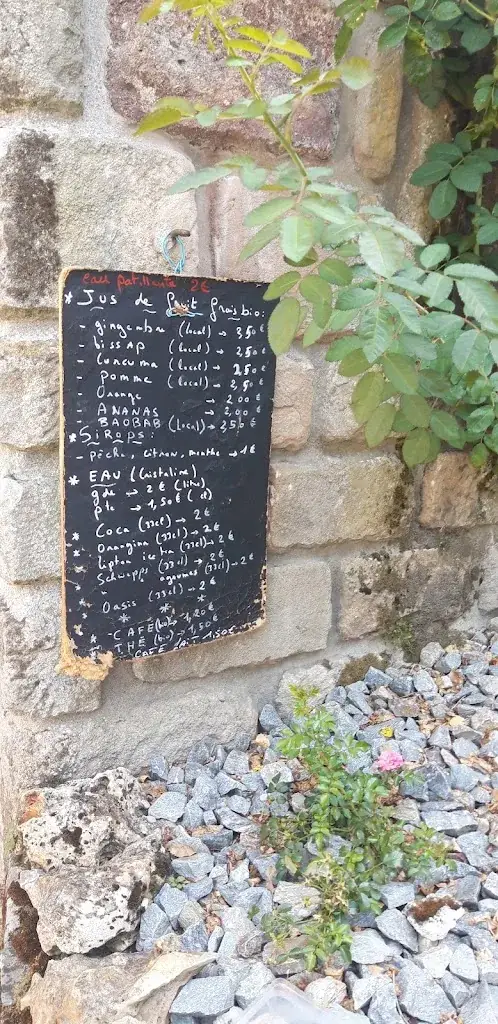 eau pétillante 2€
* Jus de fruit frais bio:
- gingembre (local) → 3,50€
- bissap (local) → 2,50€
- Curcuma (local) → 2,50€
- pomme (local) → 2,50€
- Orange → 2,00€
- ANANAS → 2,00€
- BAOBAB (local) → 2,50€
* SIROPS:
- pêche, citron, menthe → 1€
* EAU (Cristaline)
gde → 2€ (litre)
pte → 1,50€ (cl)
* Coca (33cl) → 2€
* Orangina (33cl) → 2€
* Lipton ice tea (33cl) → 2€
* Schwepps (33cl) → 2€
* " agrumes (33cl) → 2€
* Oasis (33cl) → 2€
* * *
* - CAFÉ (bio) → 1,20€
* - THÉ (bio) → 1,50€
CAFÉ LAIT 1,50€